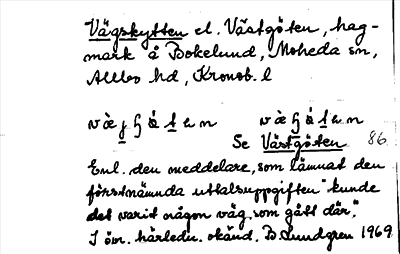 Vägskytten el. Västgöten, hag-
mark å Bokelund, Moheda sn,
Allbo hd, Kronob. l
Se Västgöten 86
Enl. den meddelare, som lämnat den
förstnämnda uttalsuppgiften "kunde
det varit någon väg, som gått där."
I övr. härledn. okänd. B Lundgren 1969